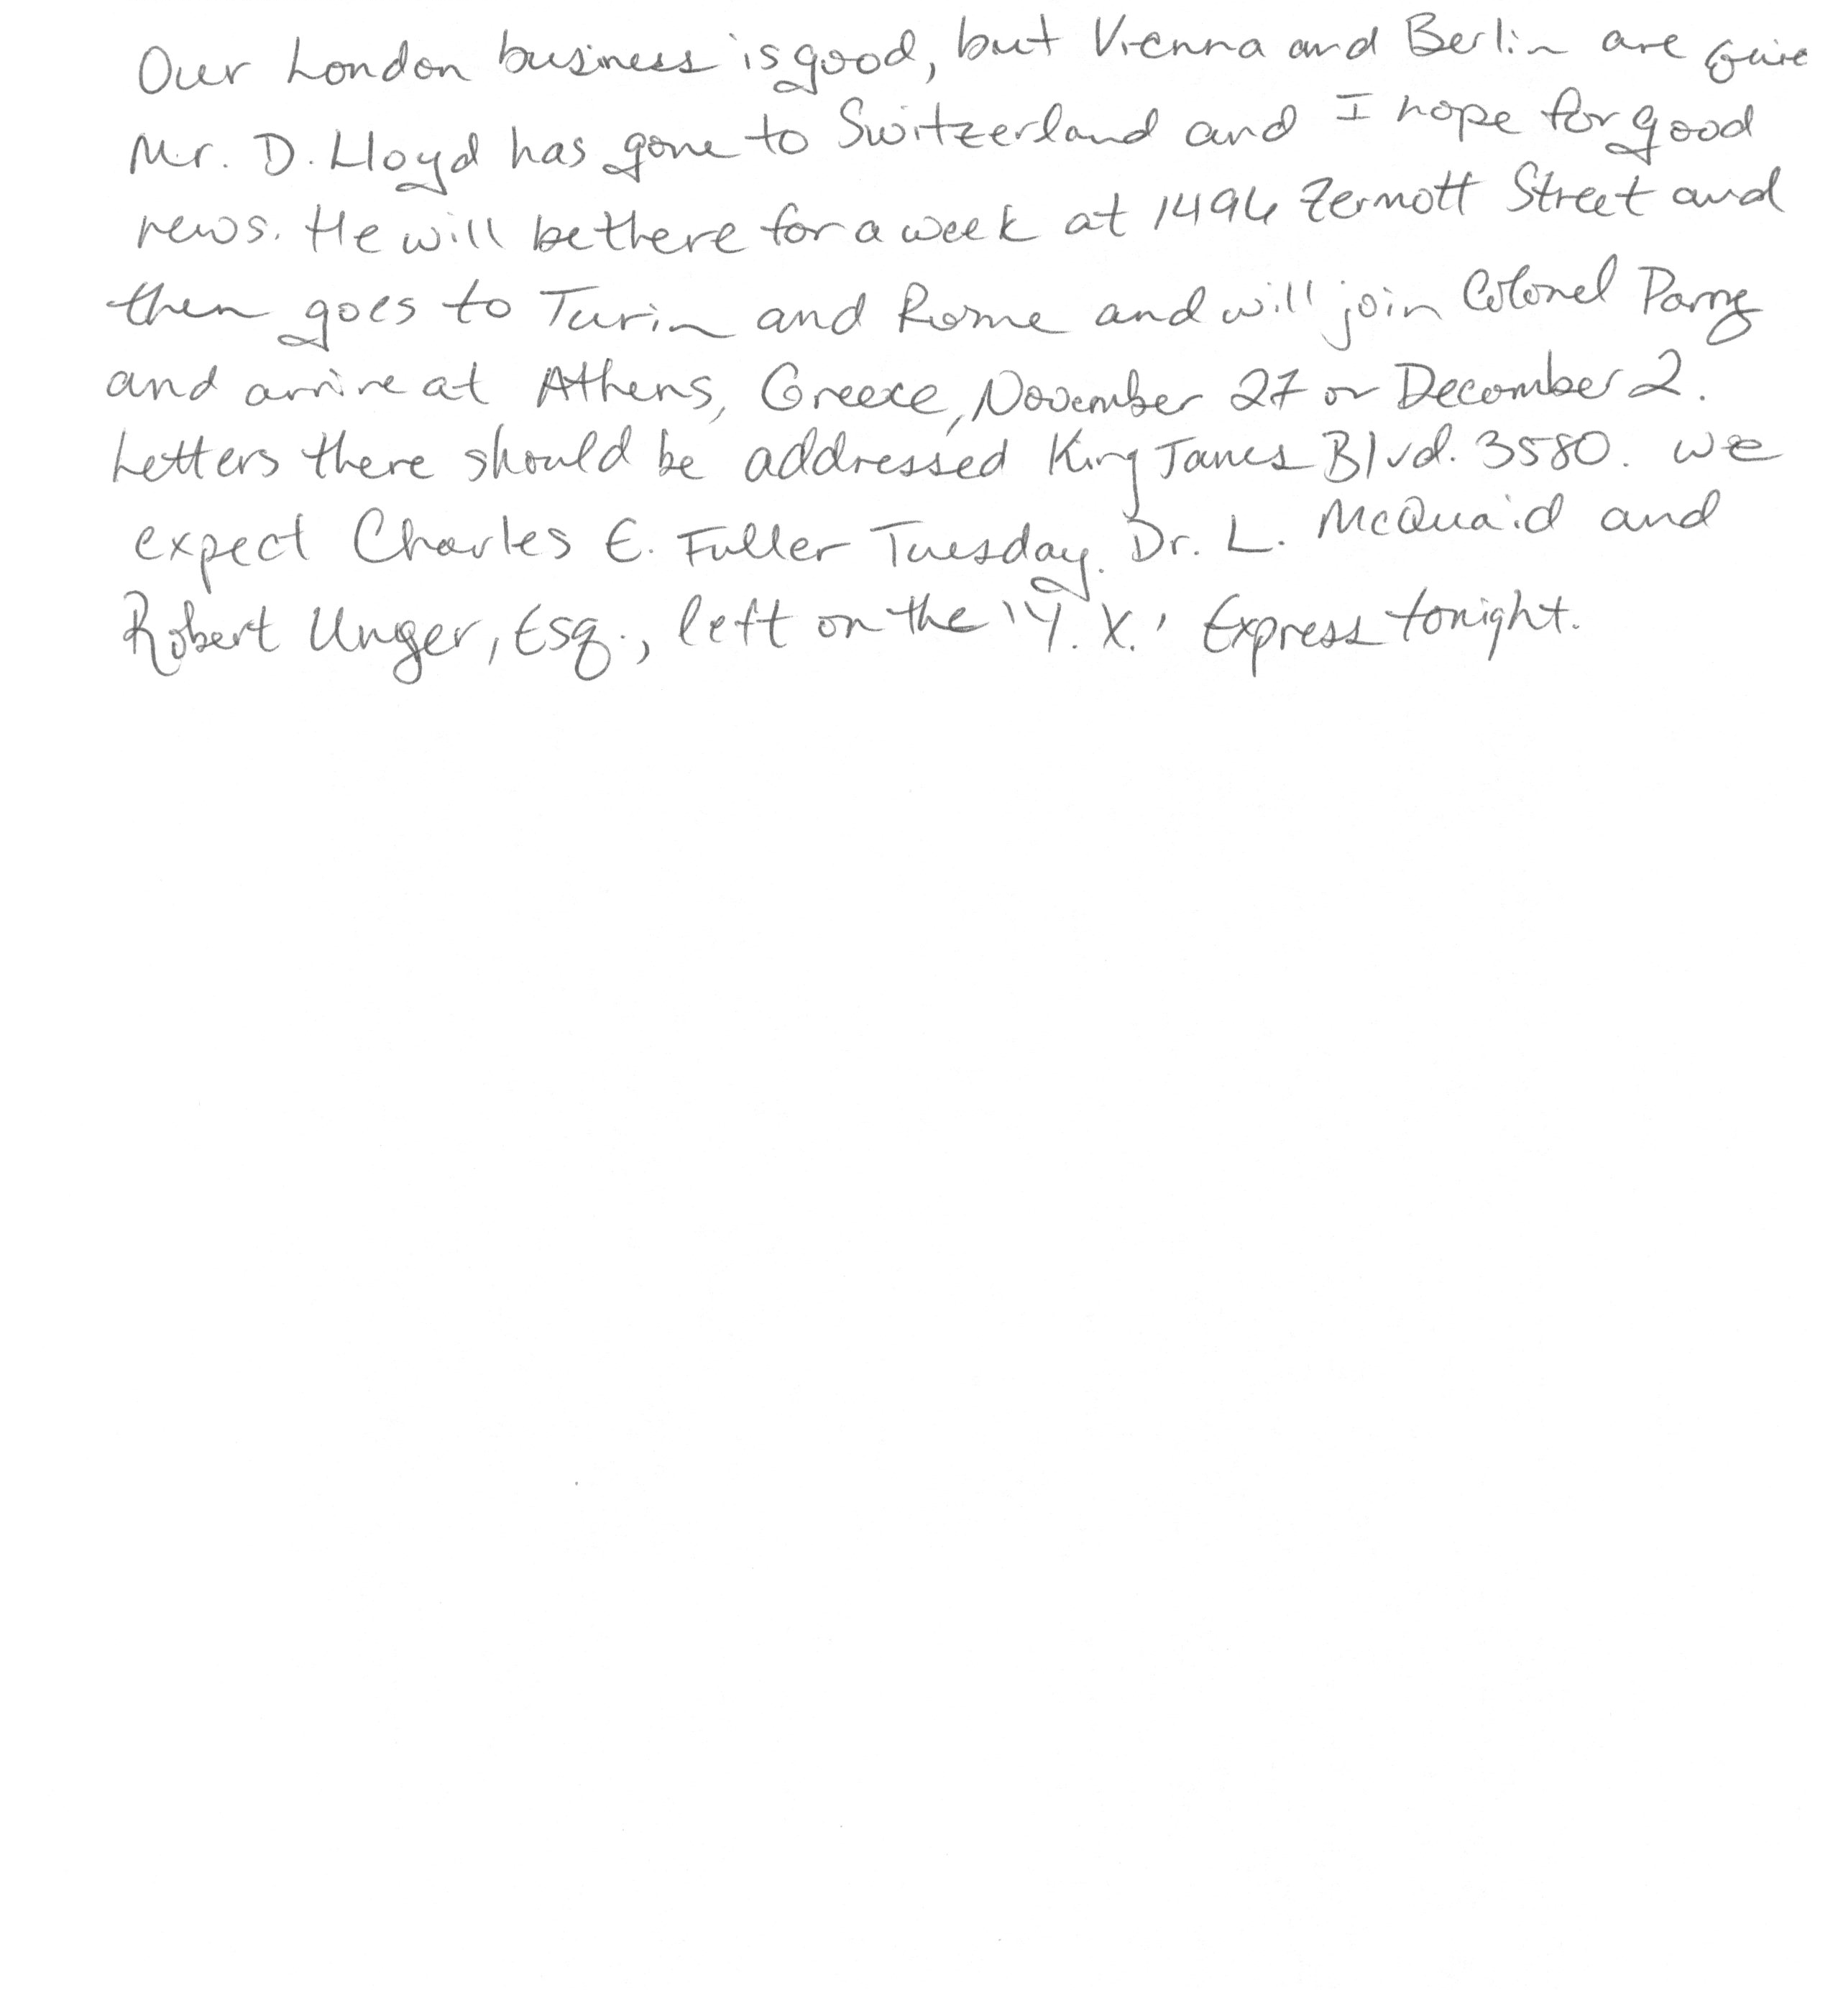 Our London business is good, but Vienna and Berlin are
Mr. D. Lloyd has gone to Switzerland and I hope for good
news. He will be there for a week at 1496 Zermott Street and
then goes to Turin and Rome and will join Colonel Parry
and arrive at Athens, Greece, November 27 or December 2.
Letters there should be addressed King James Blvd. 3580. We
expect Charles E. Fuller Tuesday. Dr. L. McQuaid and
Robert Unger, Esq., left on the 'Y.X.' Express tonight.